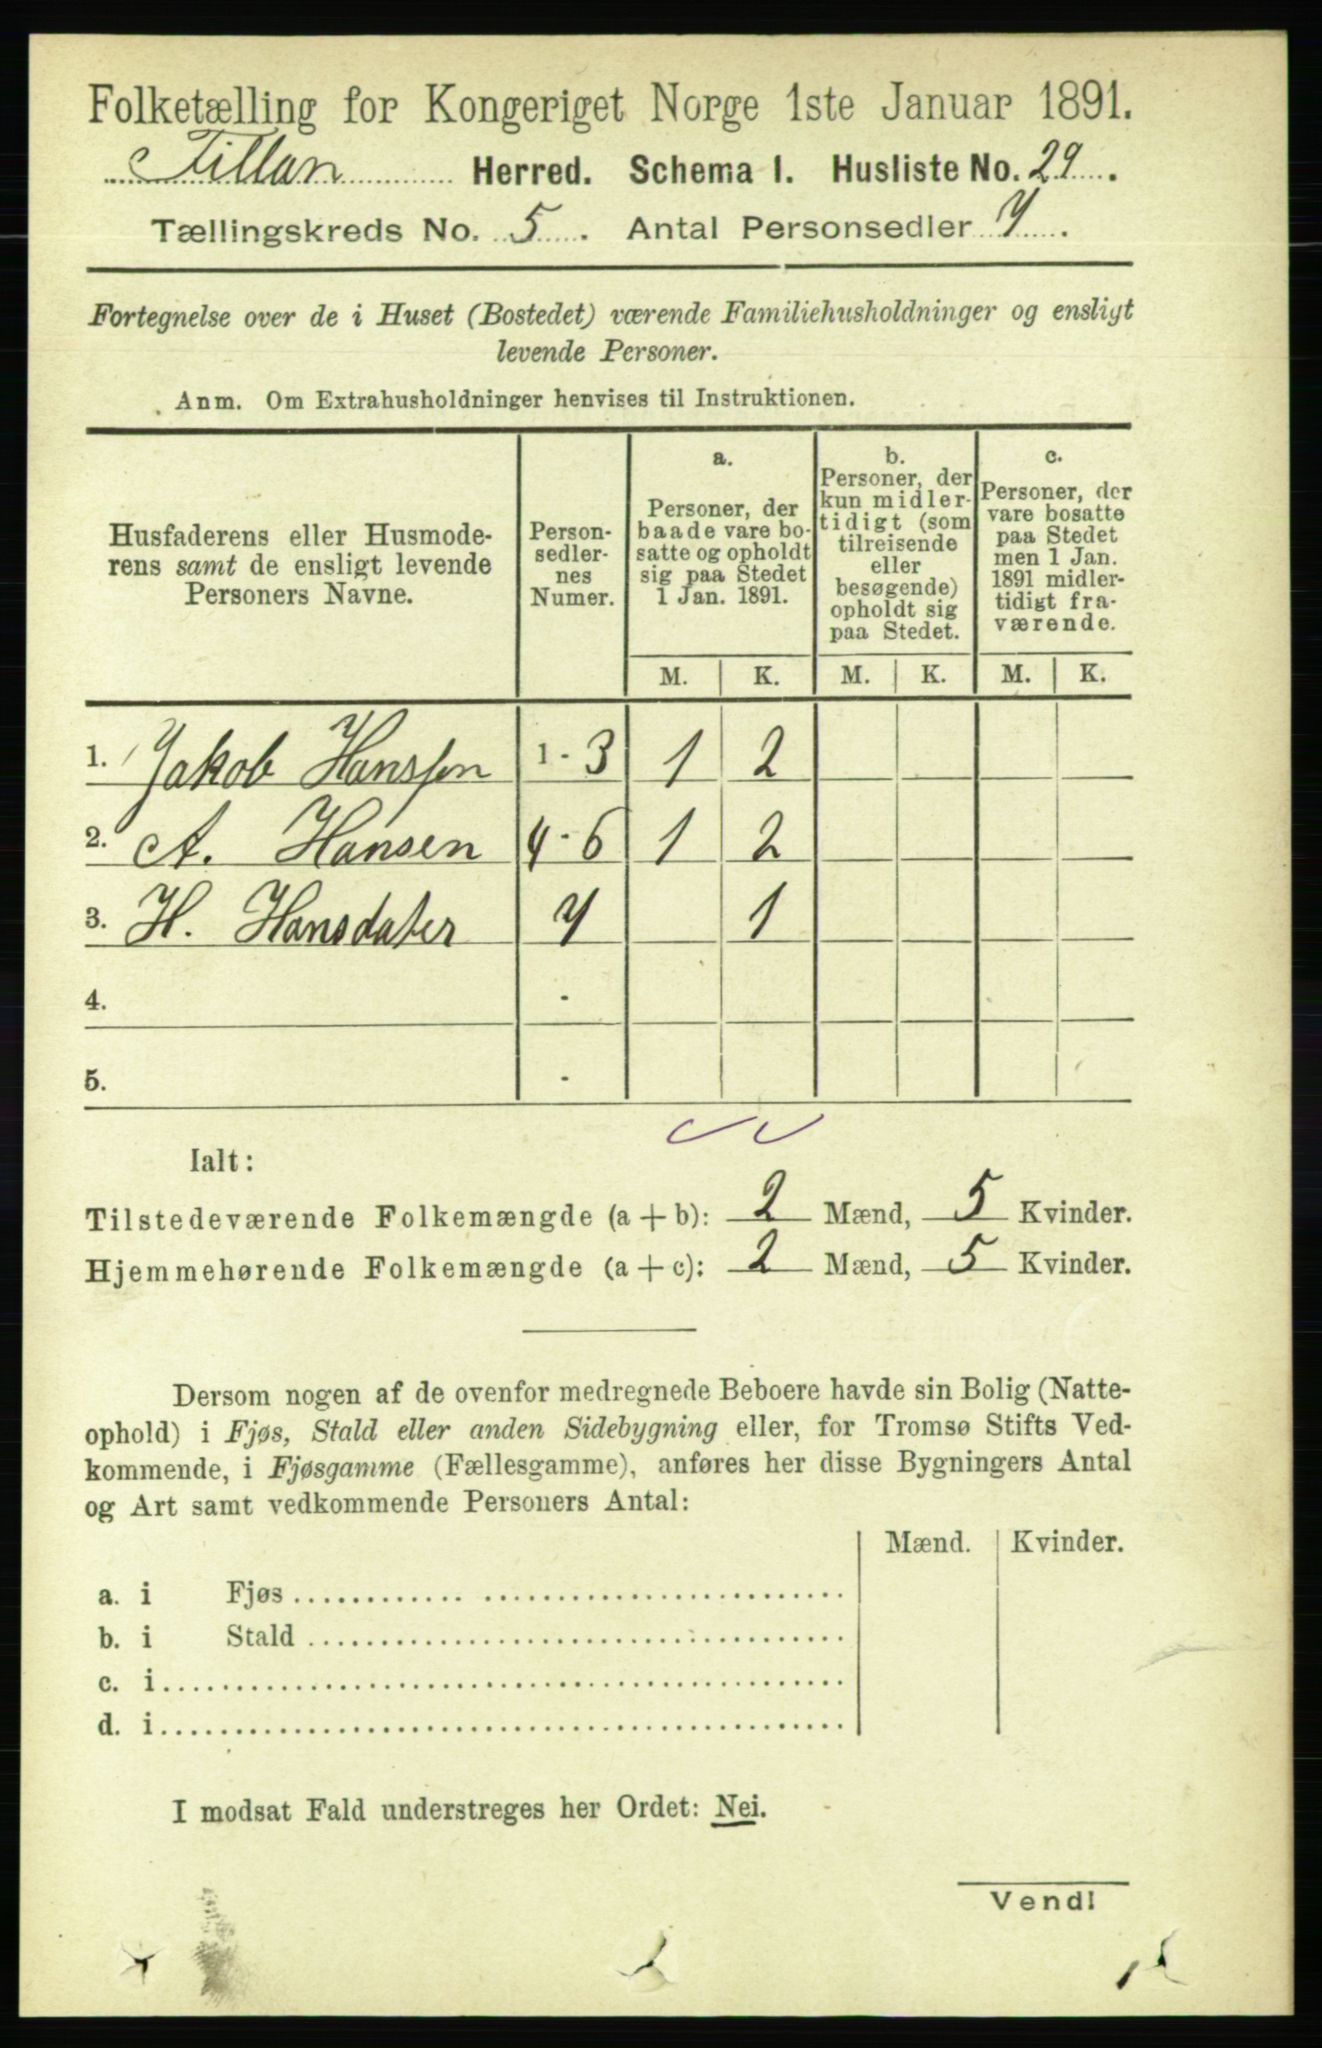 Folketælling for Kongeriget Norge 1ste Januar 1891.
Fillan Herred. Schema I. Husliste No. 29.
Tællingskreds No. 5. Antal Personsedler 7.
Fortegnelse over de i Huset (Bostedet) værende Familiehusholdninger og ensligt
levende Personer.
Anm. Om Extrahusholdninger henvises til Instruktionen.
Husfaderens eller Husmode-
rens samt de ensligt levende
Personers Navne.
Person-
sedler-
nes
Numer.
a.
Personer, der
baade vare bo-
satte og opholdt
sig paa Stedet
1 Jan. 1891.
b.
Personer, der
kun midler-
tidigt (som
tilreisende
eller
besøgende)
opholdt sig
paa Stedet.
c.
Personer, der
vare bosatte
paa Stedet
men 1 Jan.
1891 midler-
tidigt fra-
værende.
M. K. M. K. M. K.
1. Jakob Hanssen 1 - 3 1 2
2. A. Hansen 4 - 6 1 2
3. H. Hansdater 7 1
4. -
5. -
Ialt:
Tilstedeværende Folkemængde (a + b): 2 Mænd, 5 Kvinder.
Hjemmehørende Folkemængde (a + c): 2 Mænd, 5 Kvinder.
Dersom nogen af de ovenfor medregnede Beboere havde sin Bolig (Natte-
ophold) i Fjøs, Stald eller anden Sidebygning eller, for Tromsø Stifts Ved-
kommende, i Fjøsgamme (Fællesgamme), anføres her disse Bygningers Antal
og Art samt vedkommende Personers Antal:
Mænd. Kvinder.
a. i Fjøs
b. i Stald
c. i
d. i
I modsat Fald understreges her Ordet: Nei.
Vend!